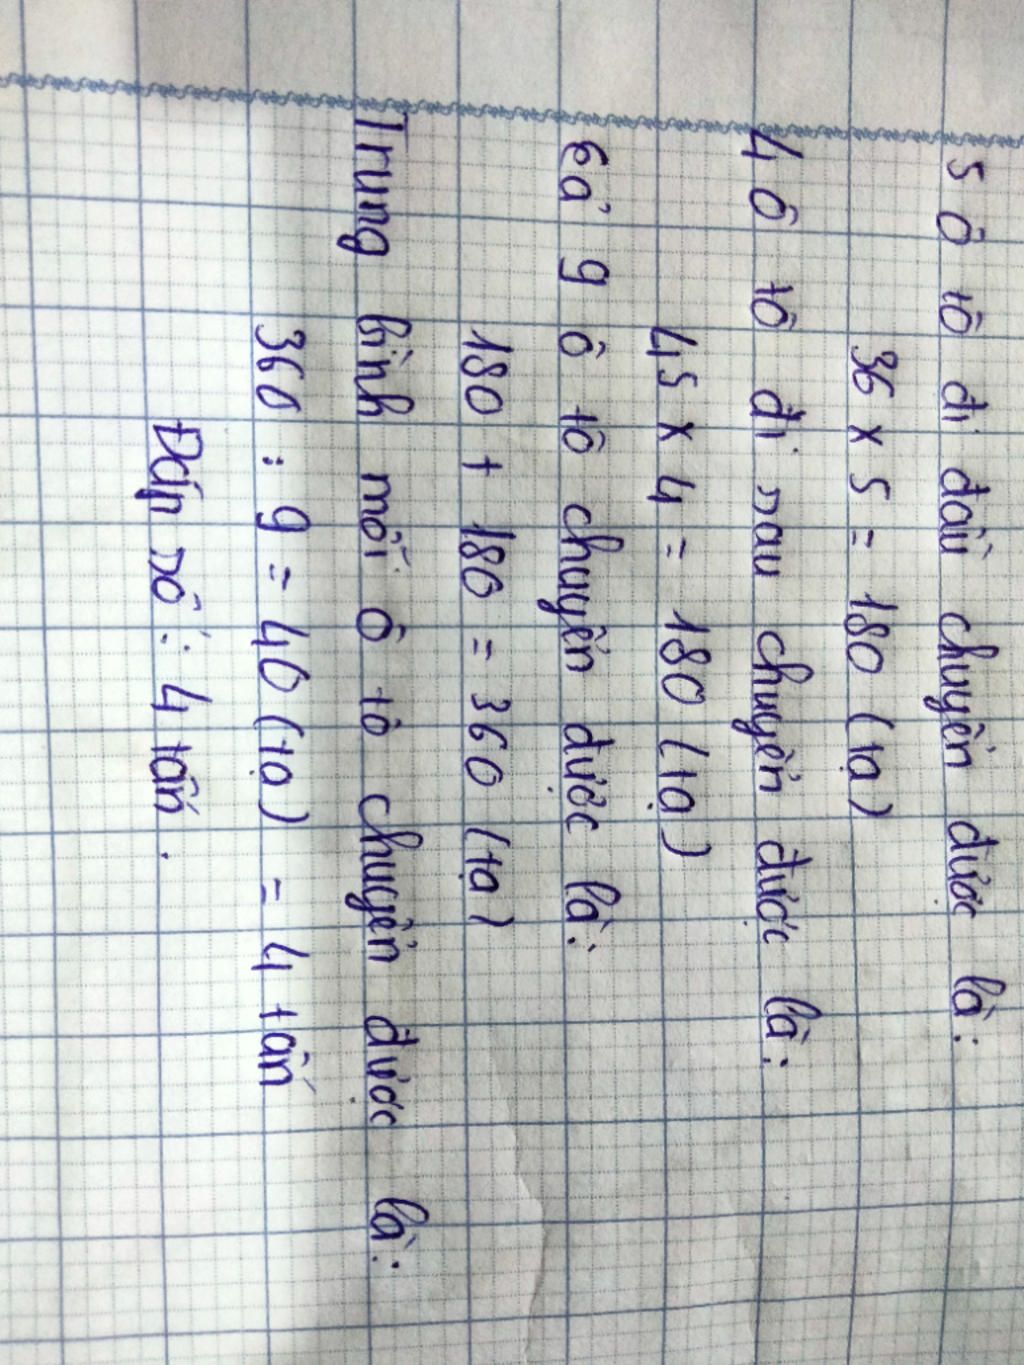 5 ô tô đi đầu chuyển được là:
36 x 5 = 180 (tạ)
4 ô tô đi sau chuyển được là:
45 x 4 = 180 (tạ)
Cả 9 ô tô chuyển được là:
180 + 180 = 360 (tạ)
Trung bình mỗi ô tô chuyển được là:
360 : 9 = 40 (tạ) = 4 tấn
Đáp số: 4 tấn.